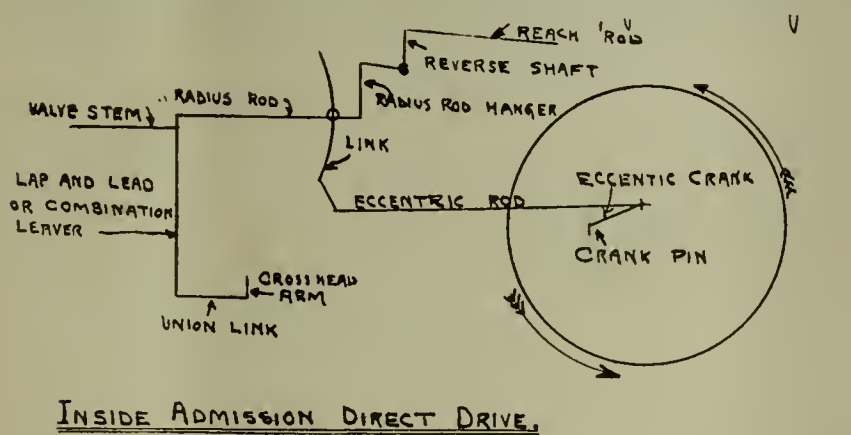 REACH ROD
U
REVERSE SHAFT
RADIUS ROD
RADIUS ROD HANGER
VALVE STEM
LINK
LAP AND LEAD
OR COMBINATION
LEAVER
ECCENTRIC ROD
ECCENTIC CRANK
CRANK PIN
CROSS HEAD
ARM
UNION LINK
INSIDE ADMISSION DIRECT DRIVE.